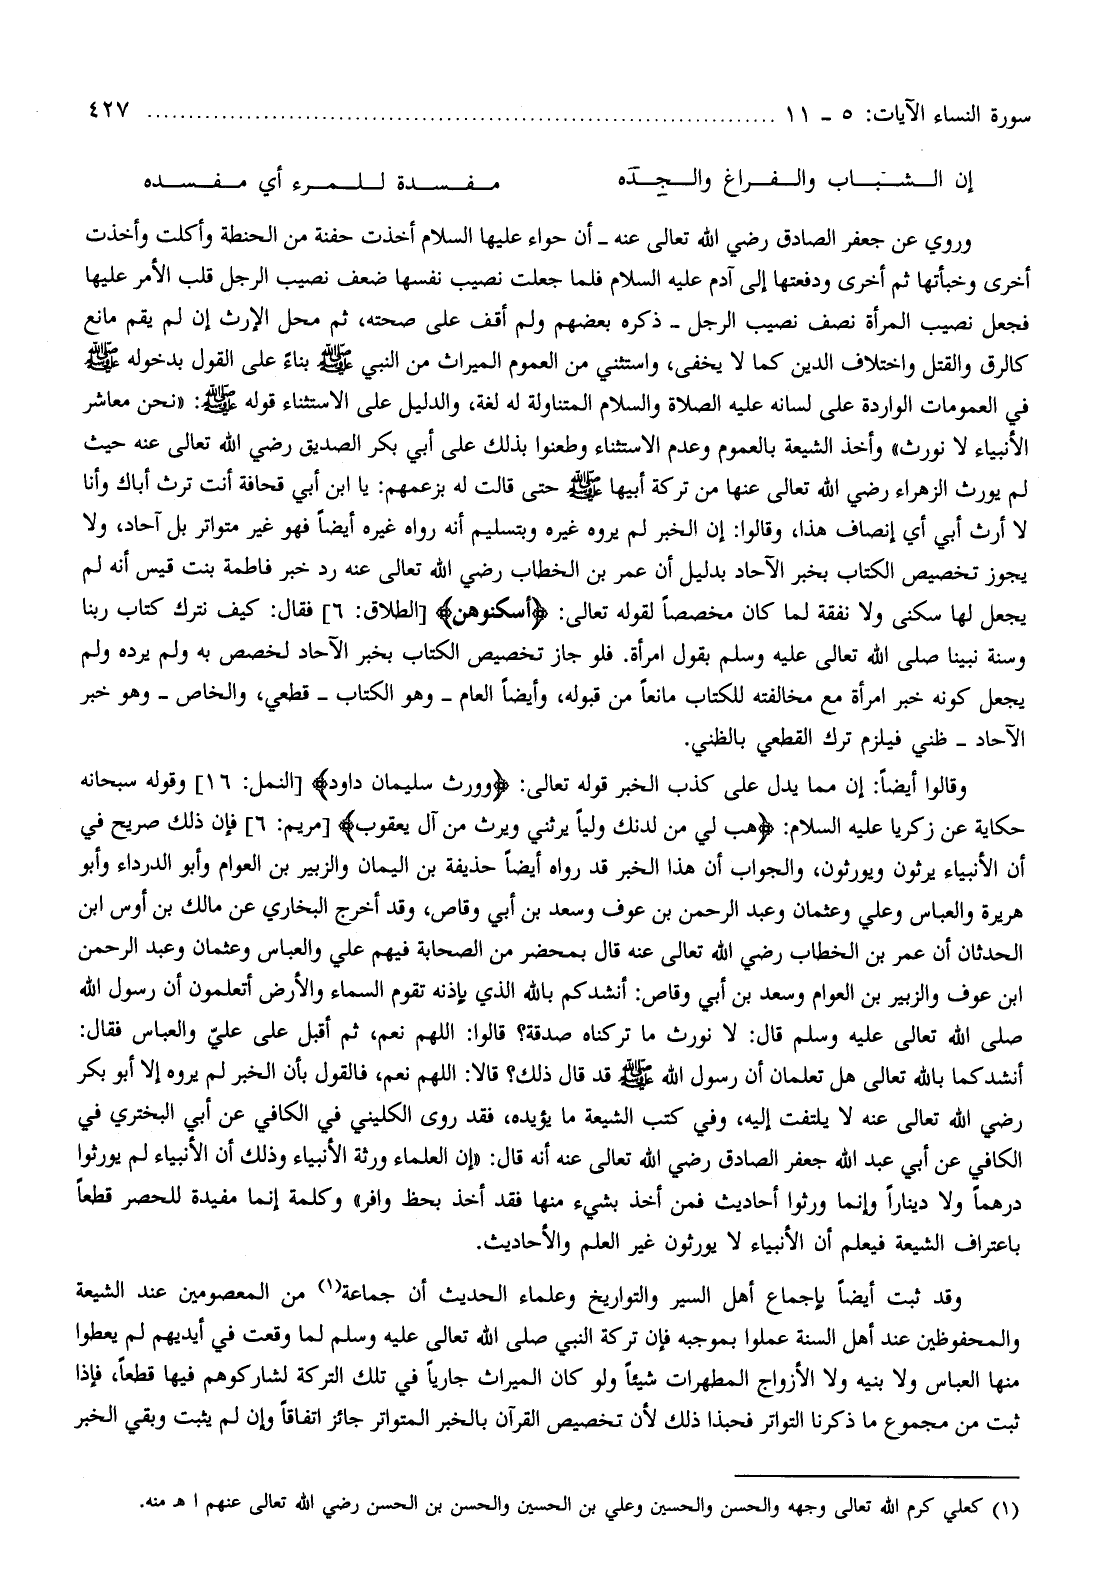 سورة النساء الآيات: ٥ ـ ١١ ........................................................................ ٤٢٧
إن الشباب والفراغ والجِدَه مفسدة للمرء أي مفسده
وروي عن جعفر الصادق رضي الله تعالى عنه ـ أن حواء عليها السلام أخذت حفنة من الحنطة وأكلت وأخذت
أخرى وخبأتها ثم أخرى ودفعتها إلى آدم عليه السلام فلما جعلت نصيب نفسها ضعف نصيب الرجل قلب الأمر عليها
فجعل نصيب المرأة نصف نصيب الرجل ـ ذكره بعضهم ولم أقف على صحته، ثم محل الإرث إن لم يقم مانع
كالرق والقتل واختلاف الدين كما لا يخفى، واستثني من العموم الميراث من النبي ﷺ بناءً على القول بدخوله ﷺ
في العمومات الواردة على لسانه عليه الصلاة والسلام المتناولة له لغة، والدليل على الاستثناء قوله ﷺ: «نحن معاشر
الأنبياء لا نورث» وأخذ الشيعة بالعموم وعدم الاستثناء وطعنوا بذلك على أبي بكر الصديق رضي الله تعالى عنه حيث
لم يورث الزهراء رضي الله تعالى عنها من تركة أبيها ﷺ حتى قالت له بزعمهم: يا ابن أبي قحافة أنت ترث أباك وأنا
لا أرث أبي أي إنصاف هذا، وقالوا: إن الخبر لم يروه غيره وبتسليم أنه رواه غيره أيضاً فهو غير متواتر بل آحاد، ولا
يجوز تخصيص الكتاب بخبر الآحاد بدليل أن عمر بن الخطاب رضي الله تعالى عنه رد خبر فاطمة بنت قيس أنه لم
يجعل لها سكنى ولا نفقة لما كان مخصصاً لقوله تعالى: ﴿أسكنوهن﴾ [الطلاق: ٦] فقال: كيف نترك كتاب ربنا
وسنة نبينا صلى الله تعالى عليه وسلم بقول امرأة. فلو جاز تخصيص الكتاب بخبر الآحاد لخصص به ولم يرده ولم
يجعل كونه خبر امرأة مع مخالفته للكتاب مانعاً من قبوله، وأيضاً العام ـ وهو الكتاب ـ قطعي، والخاص ـ وهو خبر
الآحاد ـ ظني فيلزم ترك القطعي بالظني.
وقالوا أيضاً: إن مما يدل على كذب الخبر قوله تعالى: ﴿وورث سليمان داود﴾ [النمل: ١٦] وقوله سبحانه
حكاية عن زكريا عليه السلام: ﴿هب لي من لدنك ولياً يرثني ويرث من آل يعقوب﴾ [مريم: ٦] فإن ذلك صريح في
أن الأنبياء يرثون ويورثون، والجواب أن هذا الخبر قد رواه أيضاً حذيفة بن اليمان والزبير بن العوام وأبو الدرداء وأبو
هريرة والعباس وعلي وعثمان وعبد الرحمن بن عوف وسعد بن أبي وقاص، وقد أخرج البخاري عن مالك بن أوس ابن
الحدثان أن عمر بن الخطاب رضي الله تعالى عنه قال بمحضر من الصحابة فيهم علي والعباس وعثمان وعبد الرحمن
ابن عوف والزبير بن العوام وسعد بن أبي وقاص: أنشدكم بالله الذي بإذنه تقوم السماء والأرض أتعلمون أن رسول الله
صلى الله تعالى عليه وسلم قال: لا نورث ما تركناه صدقة؟ قالوا: اللهم نعم، ثم أقبل على عليّ والعباس فقال:
أنشدكما بالله تعالى هل تعلمان أن رسول الله ﷺ قد قال ذلك؟ قالا: اللهم نعم، فالقول بأن الخبر لم يروه إلا أبو بكر
رضي الله تعالى عنه لا يلتفت إليه، وفي كتب الشيعة ما يؤيده، فقد روى الكليني في الكافي عن أبي البختري في
الكافي عن أبي عبد الله جعفر الصادق رضي الله تعالى عنه أنه قال: «إن العلماء ورثة الأنبياء وذلك أن الأنبياء لم يورثوا
درهماً ولا ديناراً وإنما ورثوا أحاديث فمن أخذ بشيء منها فقد أخذ بحظ وافر» وكلمة إنما مفيدة للحصر قطعاً
باعتراف الشيعة فيعلم أن الأنبياء لا يورثون غير العلم والأحاديث.
وقد ثبت أيضاً بإجماع أهل السير والتواريخ وعلماء الحديث أن جماعة(١) من المعصومين عند الشيعة
والمحفوظين عند أهل السنة عملوا بموجبه فإن تركة النبي صلى الله تعالى عليه وسلم لما وقعت في أيديهم لم يعطوا
منها العباس ولا بنيه ولا الأزواج المطهرات شيئاً ولو كان الميراث جارياً في تلك التركة لشاركوهم فيها قطعاً، فإذا
ثبت من مجموع ما ذكرنا التواتر فحبذا ذلك لأن تخصيص القرآن بالخبر المتواتر جائز اتفاقاً وإن لم يثبت وبقي الخبر
(١) كعلي كرم الله تعالى وجهه والحسن والحسين وعلي بن الحسين والحسن بن الحسن رضي الله تعالى عنهم ا هـ منه.